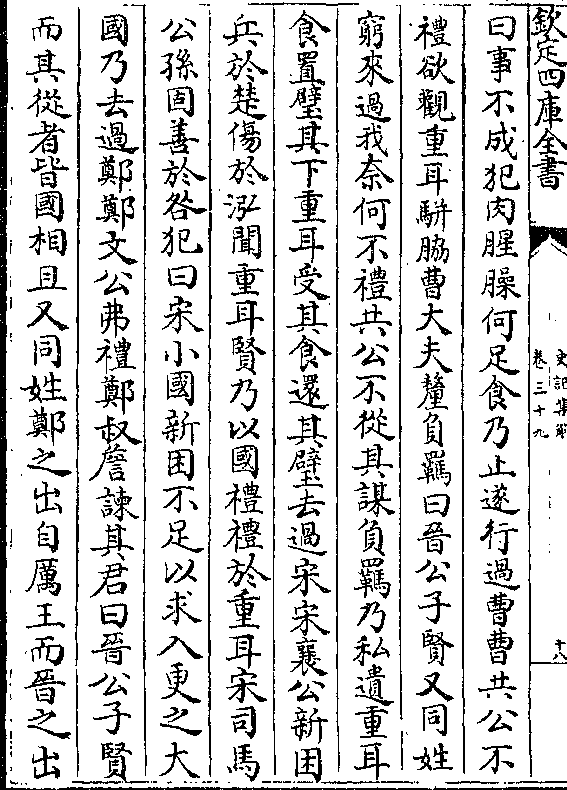 欽定四庫全書
史記集解
卷三十九
十八
曰事不成犯肉腥臊何足食乃止遂行過曹曹共公不
禮欲觀重耳駢脇曹大夫釐負羈曰晉公子賢又同姓
窮來過我奈何不禮共公不從其謀負羈乃私遺重耳
食置璧其下重耳受其食還其璧去過宋宋襄公新困
兵於楚傷於泓聞重耳賢乃以國禮禮於重耳宋司馬
公孫固善於咎犯曰宋小國新困不足以求入更之大
國乃去過鄭鄭文公弗禮鄭叔詹諫其君曰晉公子賢
而其從者皆國相且又同姓鄭之出自厲王而晉之出